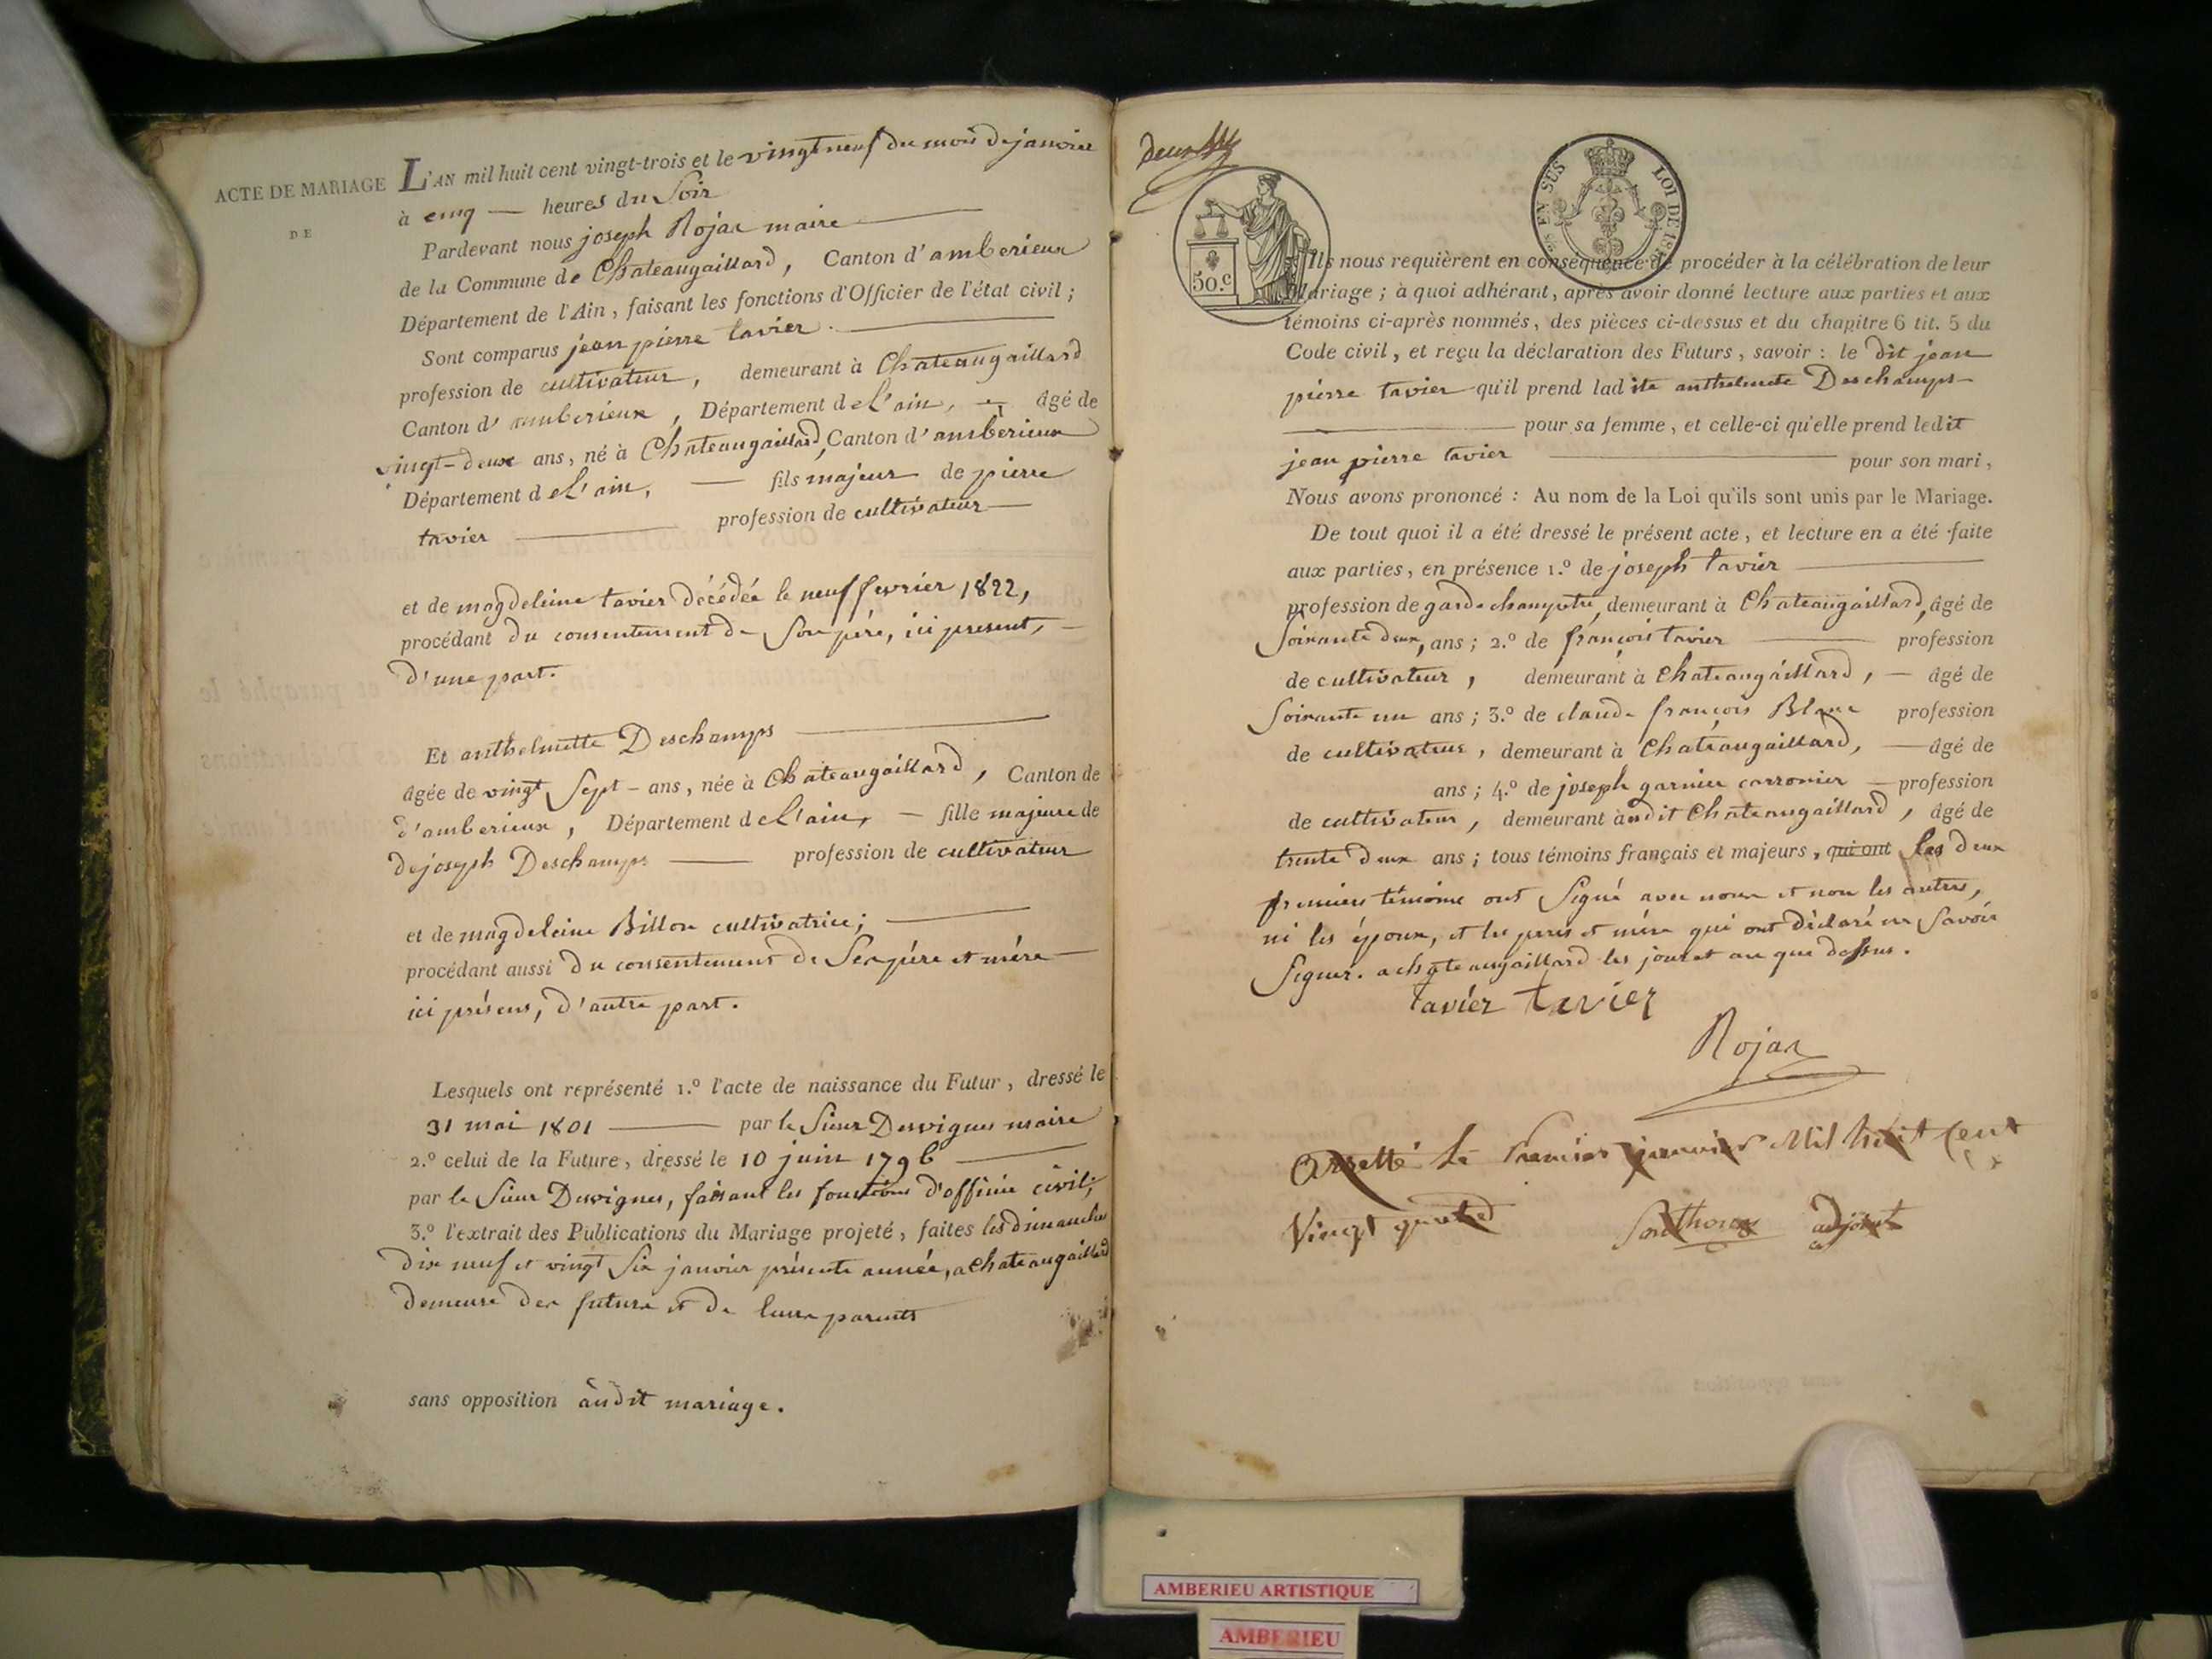 ACTE DE MARIAGE
DE
L'AN mil huit cent vingt-trois et le vingt neuf du mois de janvier
à cinq — heures du Soir
Pardevant nous joseph Rojat maire
de la Commune de Chateaugaillard, Canton d'amberieux
Département de l'Ain, faisant les fonctions d'Officier de l'état civil;
Sont comparus jean pierre tavier.
profession de cultivateur, demeurant à Chateaugaillard
Canton d'amberieux, Département de l'ain, — âgé de
vingt-deux ans, né à Chateaugaillard, Canton d'amberieux
Département de l'ain, — fils majeur de pierre
tavier — profession de cultivateur —
et de magdeleine tavier décédée le neuf fevrier 1822,
procédant du consentement de Son pére, ici present, —
d'une part.
Et anthelmette Deschamps
âgée de vingt Sept - ans, née à Chateaugaillard, Canton de
d'amberieux, Département de l'ain, — fille majeure de
de joseph Deschamps — profession de cultivateur
et de magdeleine Billon cultivatrice; —
procédant aussi du consentement de Ses pére et mére —
ici présens, d'autre part.
Lesquels ont représenté 1.º l'acte de naissance du Futur, dressé le
31 mai 1801 — par le Sieur Desvignes maire
2.º celui de la Future, dressé le 10 juin 1796 —
par le Sieur Desvignes, faisant les fonctions d'officier civil;
3.º l'extrait des Publications du Mariage projeté, faites les dimanches
dix neuf et vingt Six janvier présente année, a Chateaugaillard
demeure des futurs et de leurs parents
sans opposition audit mariage.
deux
50.c
EN SUS
LOI DE 18
Ils nous requièrent en conséquence de procéder à la célébration de leur
Mariage; à quoi adhérant, après avoir donné lecture aux parties et aux
témoins ci-après nommés, des pièces ci-dessus et du chapitre 6 tit. 5 du
Code civil, et reçu la déclaration des Futurs, savoir: le dit jean
pierre tavier qu'il prend ladite anthelmete Deschamps —
— pour sa femme, et celle-ci qu'elle prend ledit
jean pierre tavier — pour son mari,
Nous avons prononcé: Au nom de la Loi qu'ils sont unis par le Mariage.
De tout quoi il a été dressé le présent acte, et lecture en a été faite
aux parties, en présence 1.º de joseph tavier —
profession de garde champetre, demeurant à Chateaugaillard, âgé de
Soixante deux, ans; 2.º de françois tavier — profession
de cultivateur, demeurant à Chateaugaillard, — âgé de
Soixante un ans; 3.º de claude françois Blanc profession
de cultivateur, demeurant à Chateaugaillard, — âgé de
ans; 4.º de joseph garnier carronier — profession
de cultivateur, demeurant audit Chateaugaillard, âgé de
trente deux ans; tous témoins français et majeurs, qui ont Les deux
premiers témoins ont Signé avec nous et non les autres,
ni les époux, et les peres et mére qui ont déclaré ne Savoir
Signer. a chateaugaillard les jour et an que dessus.
tavier tavier
Rojat
Arretté le Premier janvier Mil huit cent
Vingt quatre
adjoint
AMBERIEU ARTISTIQUE
AMBERIEU